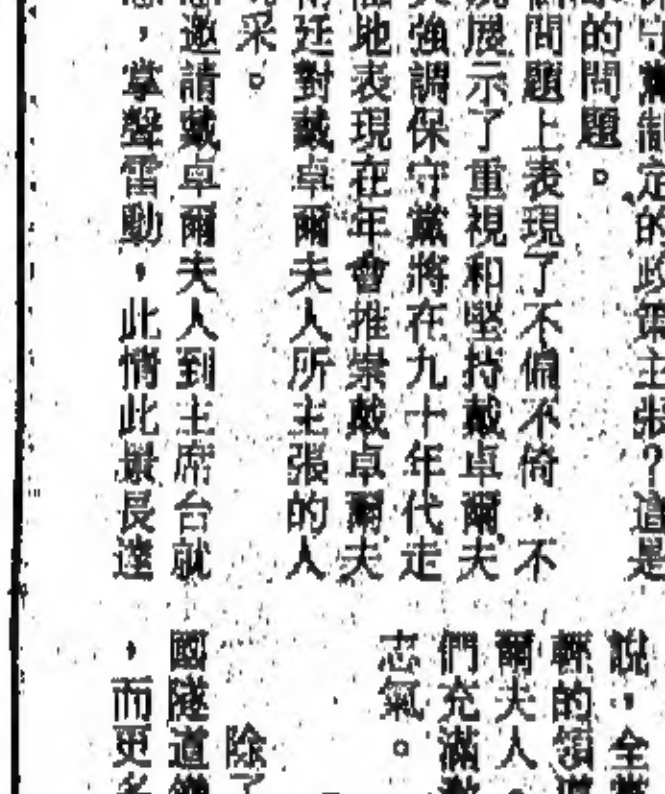 定的政策主張？這是
的問題。
問題上表現了不偏不倚，不
展示了重視和堅持戴卓爾夫
強調保守黨將在九十年代走
地表現在年會推崇戴卓爾夫
廷對戴卓爾夫人所主張的人
采。
邀請戴卓爾夫人到主席台就
，掌聲雷動，此情此景長達
說，全黨
輕的領
爾夫人。
們充滿
志氣。
除了
國隧道
，而更多